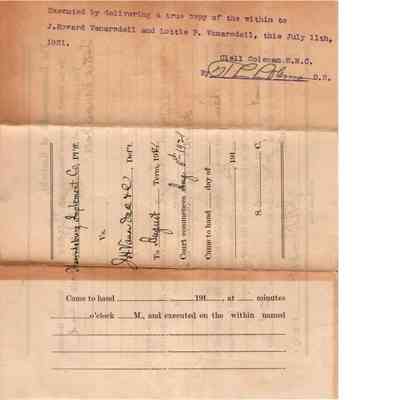 Executed by delivering a true copy of the within to
J.Howard Vanarsdell and Lottie P. Vanarsdell, this July 11th,
1921.
Clell Coleman.S.M.C.
By D.S.
Harrodsburg Implement Co, Pl'ff.
Vs.
Def't.
To August Term, 192
Court commences Aug 8th 1921
Came to hand day of
191
S. C.
Came to hand , 191 , at minutes
o'clock M., and executed on the within named